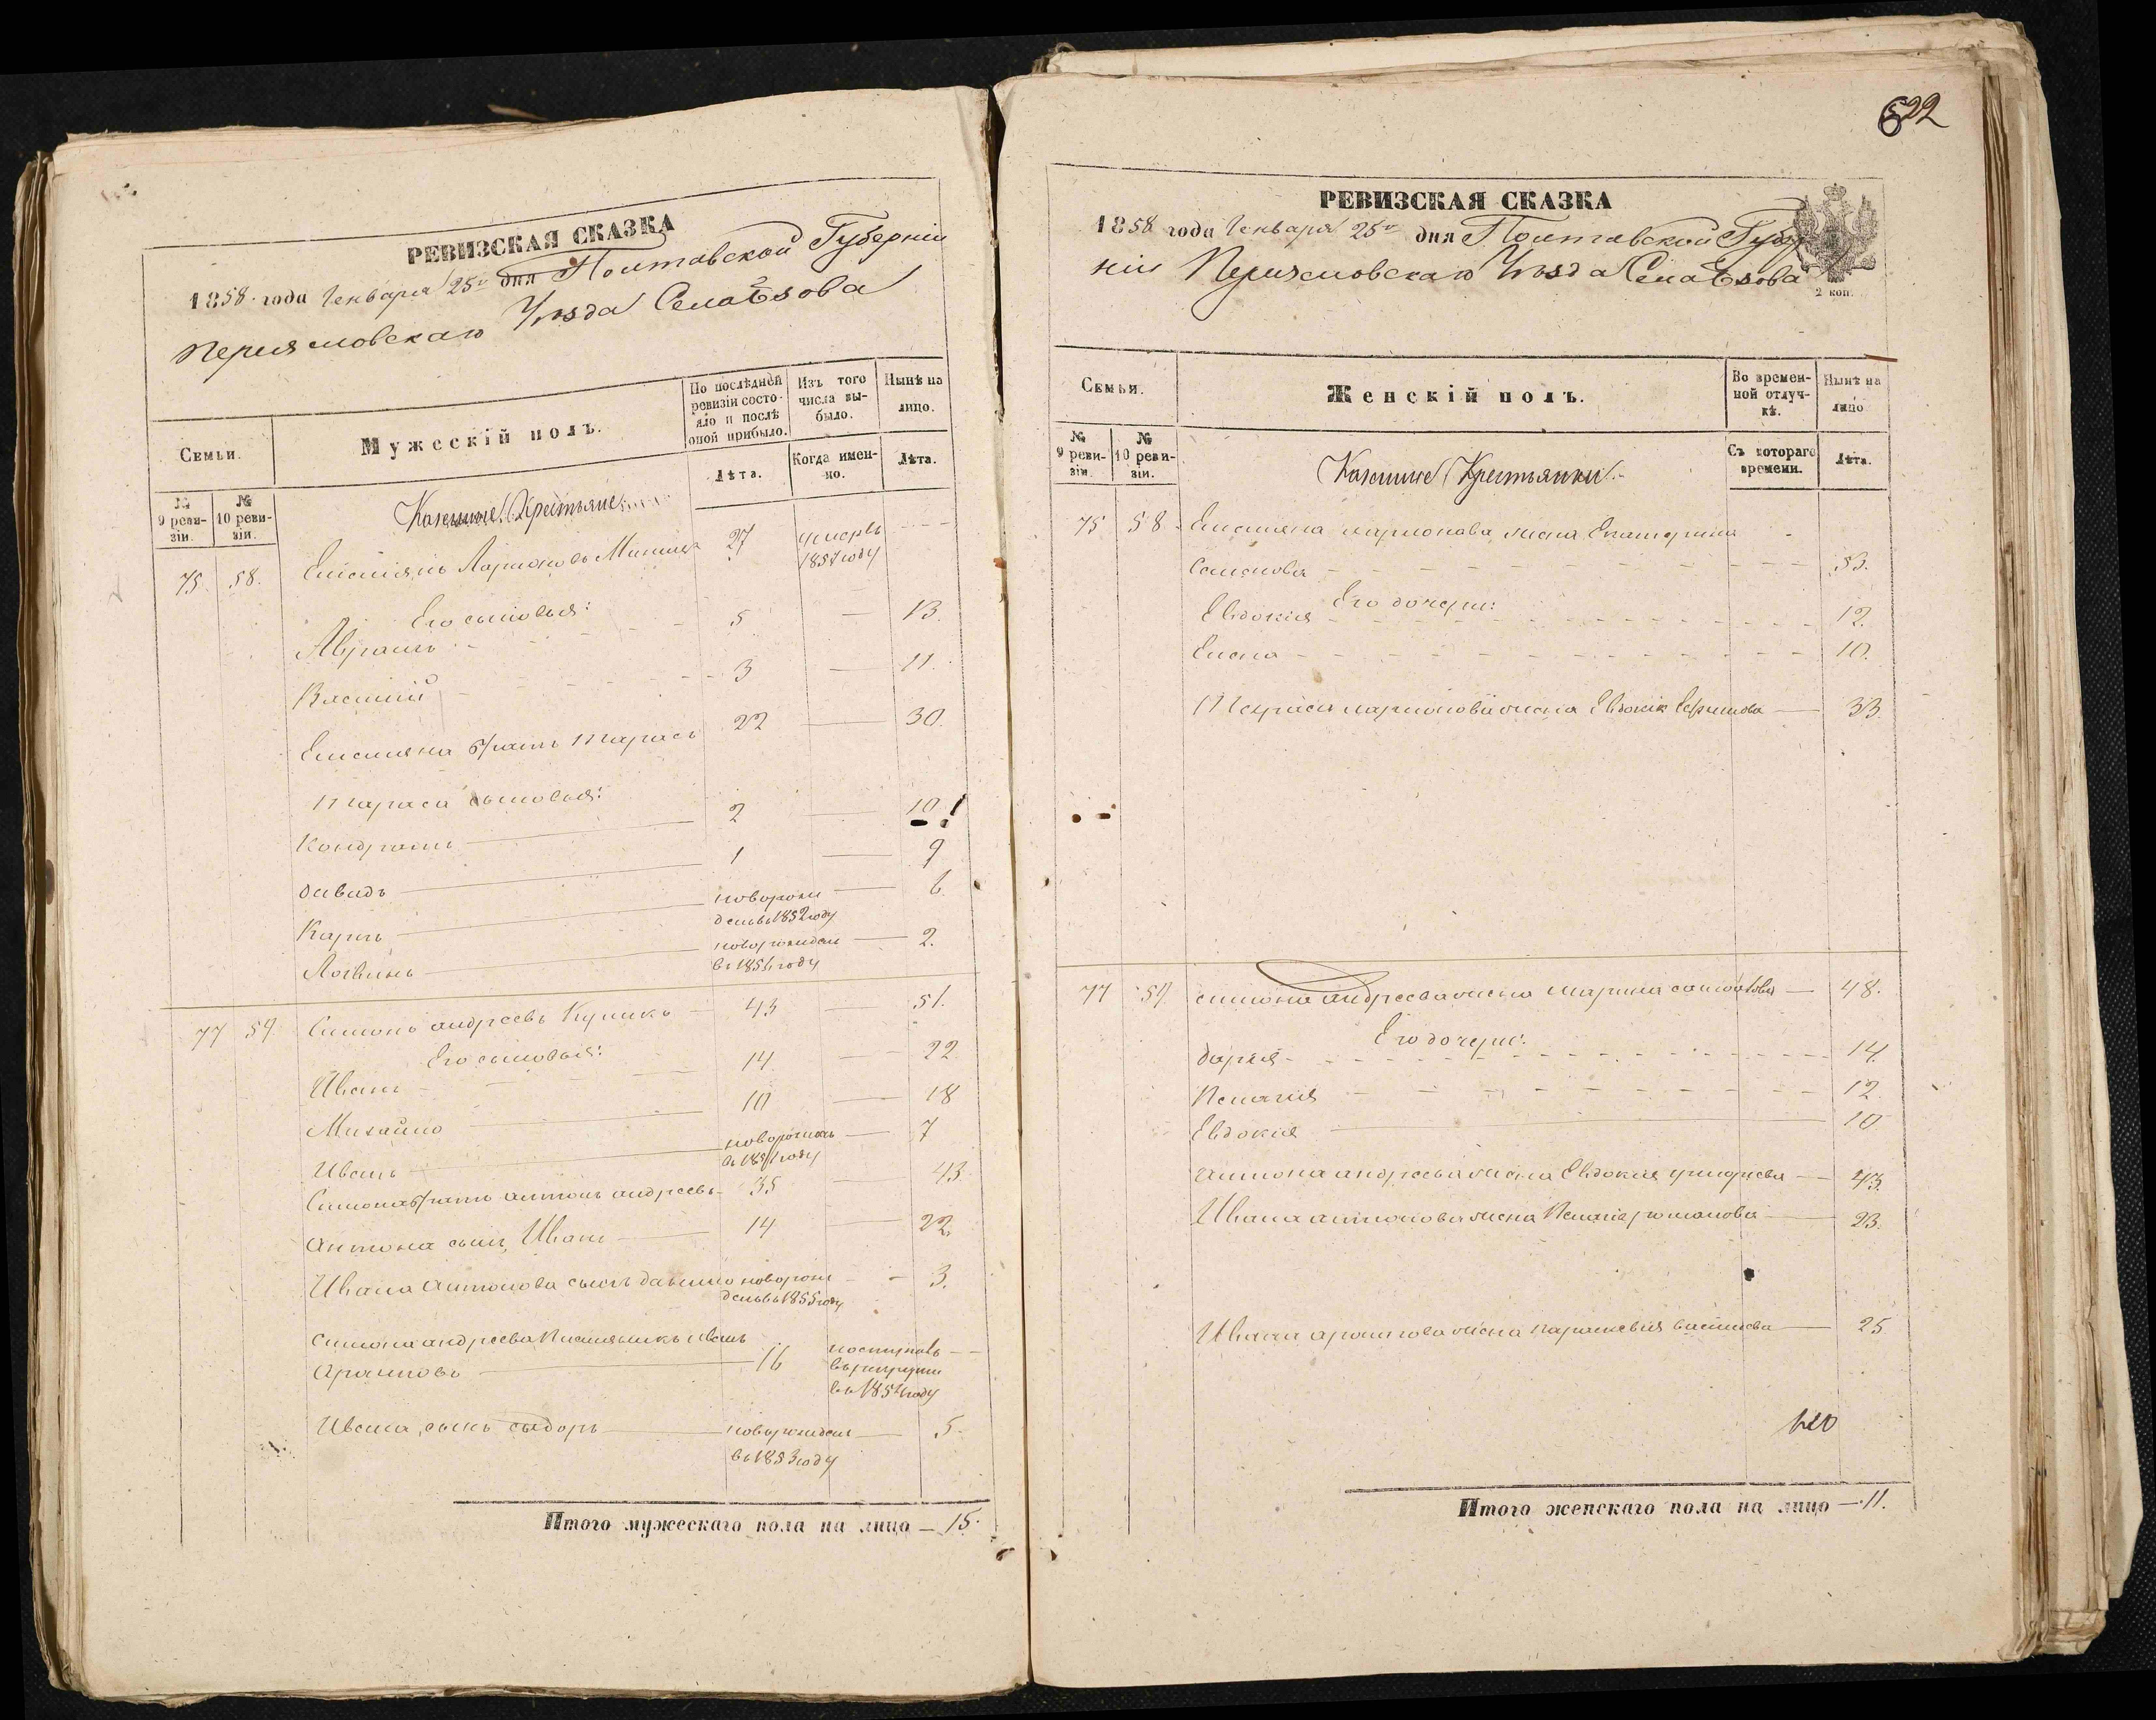 РЕВИЗСКАЯ СКАЗКА
1858 года Генваря 25го дня Полтавской Губерніи
Переяславскаго Уѣзда Села
Семьи.
Мужескій полъ.
По послѣдней ревизіи состояло и послѣ оной прибыло.
Изъ того числа выбыло.
Нынѣ на лицо.
№ 9 ревизіи.
№ 10 ревизіи.
Лѣта.
Когда именно.
Лѣта.
Казенные Крестьяне
75. 58. Емельянъ Ларіоновъ 27 умеръ
1857 году
Его сыновья:
Аврамъ 5 — 13.
Василий 3 — 11.
Емельяна братъ Тарасъ 22 — 30.
Тараса сыновья:
Кондратъ 2 — 10
давидъ 1 — 9
Карпъ новорож
денъ въ 1852 году — 6
Логвинъ новорожден
въ 1856 году — 2.
77 59 Симонъ андреевъ Куликъ 43 — 51.
Его сыновья:
Иванъ 14. — 22.
Михайло 10 — 18
Иванъ новорожденъ
въ 1851 году — 7
Симона братъ антонъ андреевъ 35 — 43.
Антона сынъ Иванъ 14 — 22.
Ивана Антонова сынъ данило новорож
денъ въ 1855 году — 3.
Симона андреева племянникъ иванъ
16 поступилъ
въ рекруты
въ году
Ивана сынъ сыдоръ новорожден — 5.
въ 1853 году
Итого мужескаго пола на лицо — 15.
622
РЕВИЗСКАЯ СКАЗКА
1858 года Генваря 25го дня Полтавской Губер
ніи Переяславскаго Уѣзда Села
2 коп.
Семьи.
Женскій полъ.
Во временной отлучкѣ.
Нынѣ на лицо
№ 9 ревизіи.
№ 10 ревизіи.
Съ котораго времени.
Лѣта.
Казенные Крестьянки
75 58. Емельяна ларионова жена Екатерина
Семенова 53.
Его дочери:
Евдокія 12.
Елена 10.
Тараса ларионова жена Евдокія Ефимова — 33
77 59 симона андреева жена марина — 48.
Его дочери:
дарья 14.
Пелагия 12.
Евдокия 10
антона андреева жена Евдокия григориева — 43.
Ивана антонова жена Пелагия романова — 23.
Ивана жена параскевия василиева — 25
Итого женскаго пола на лицо — 11.